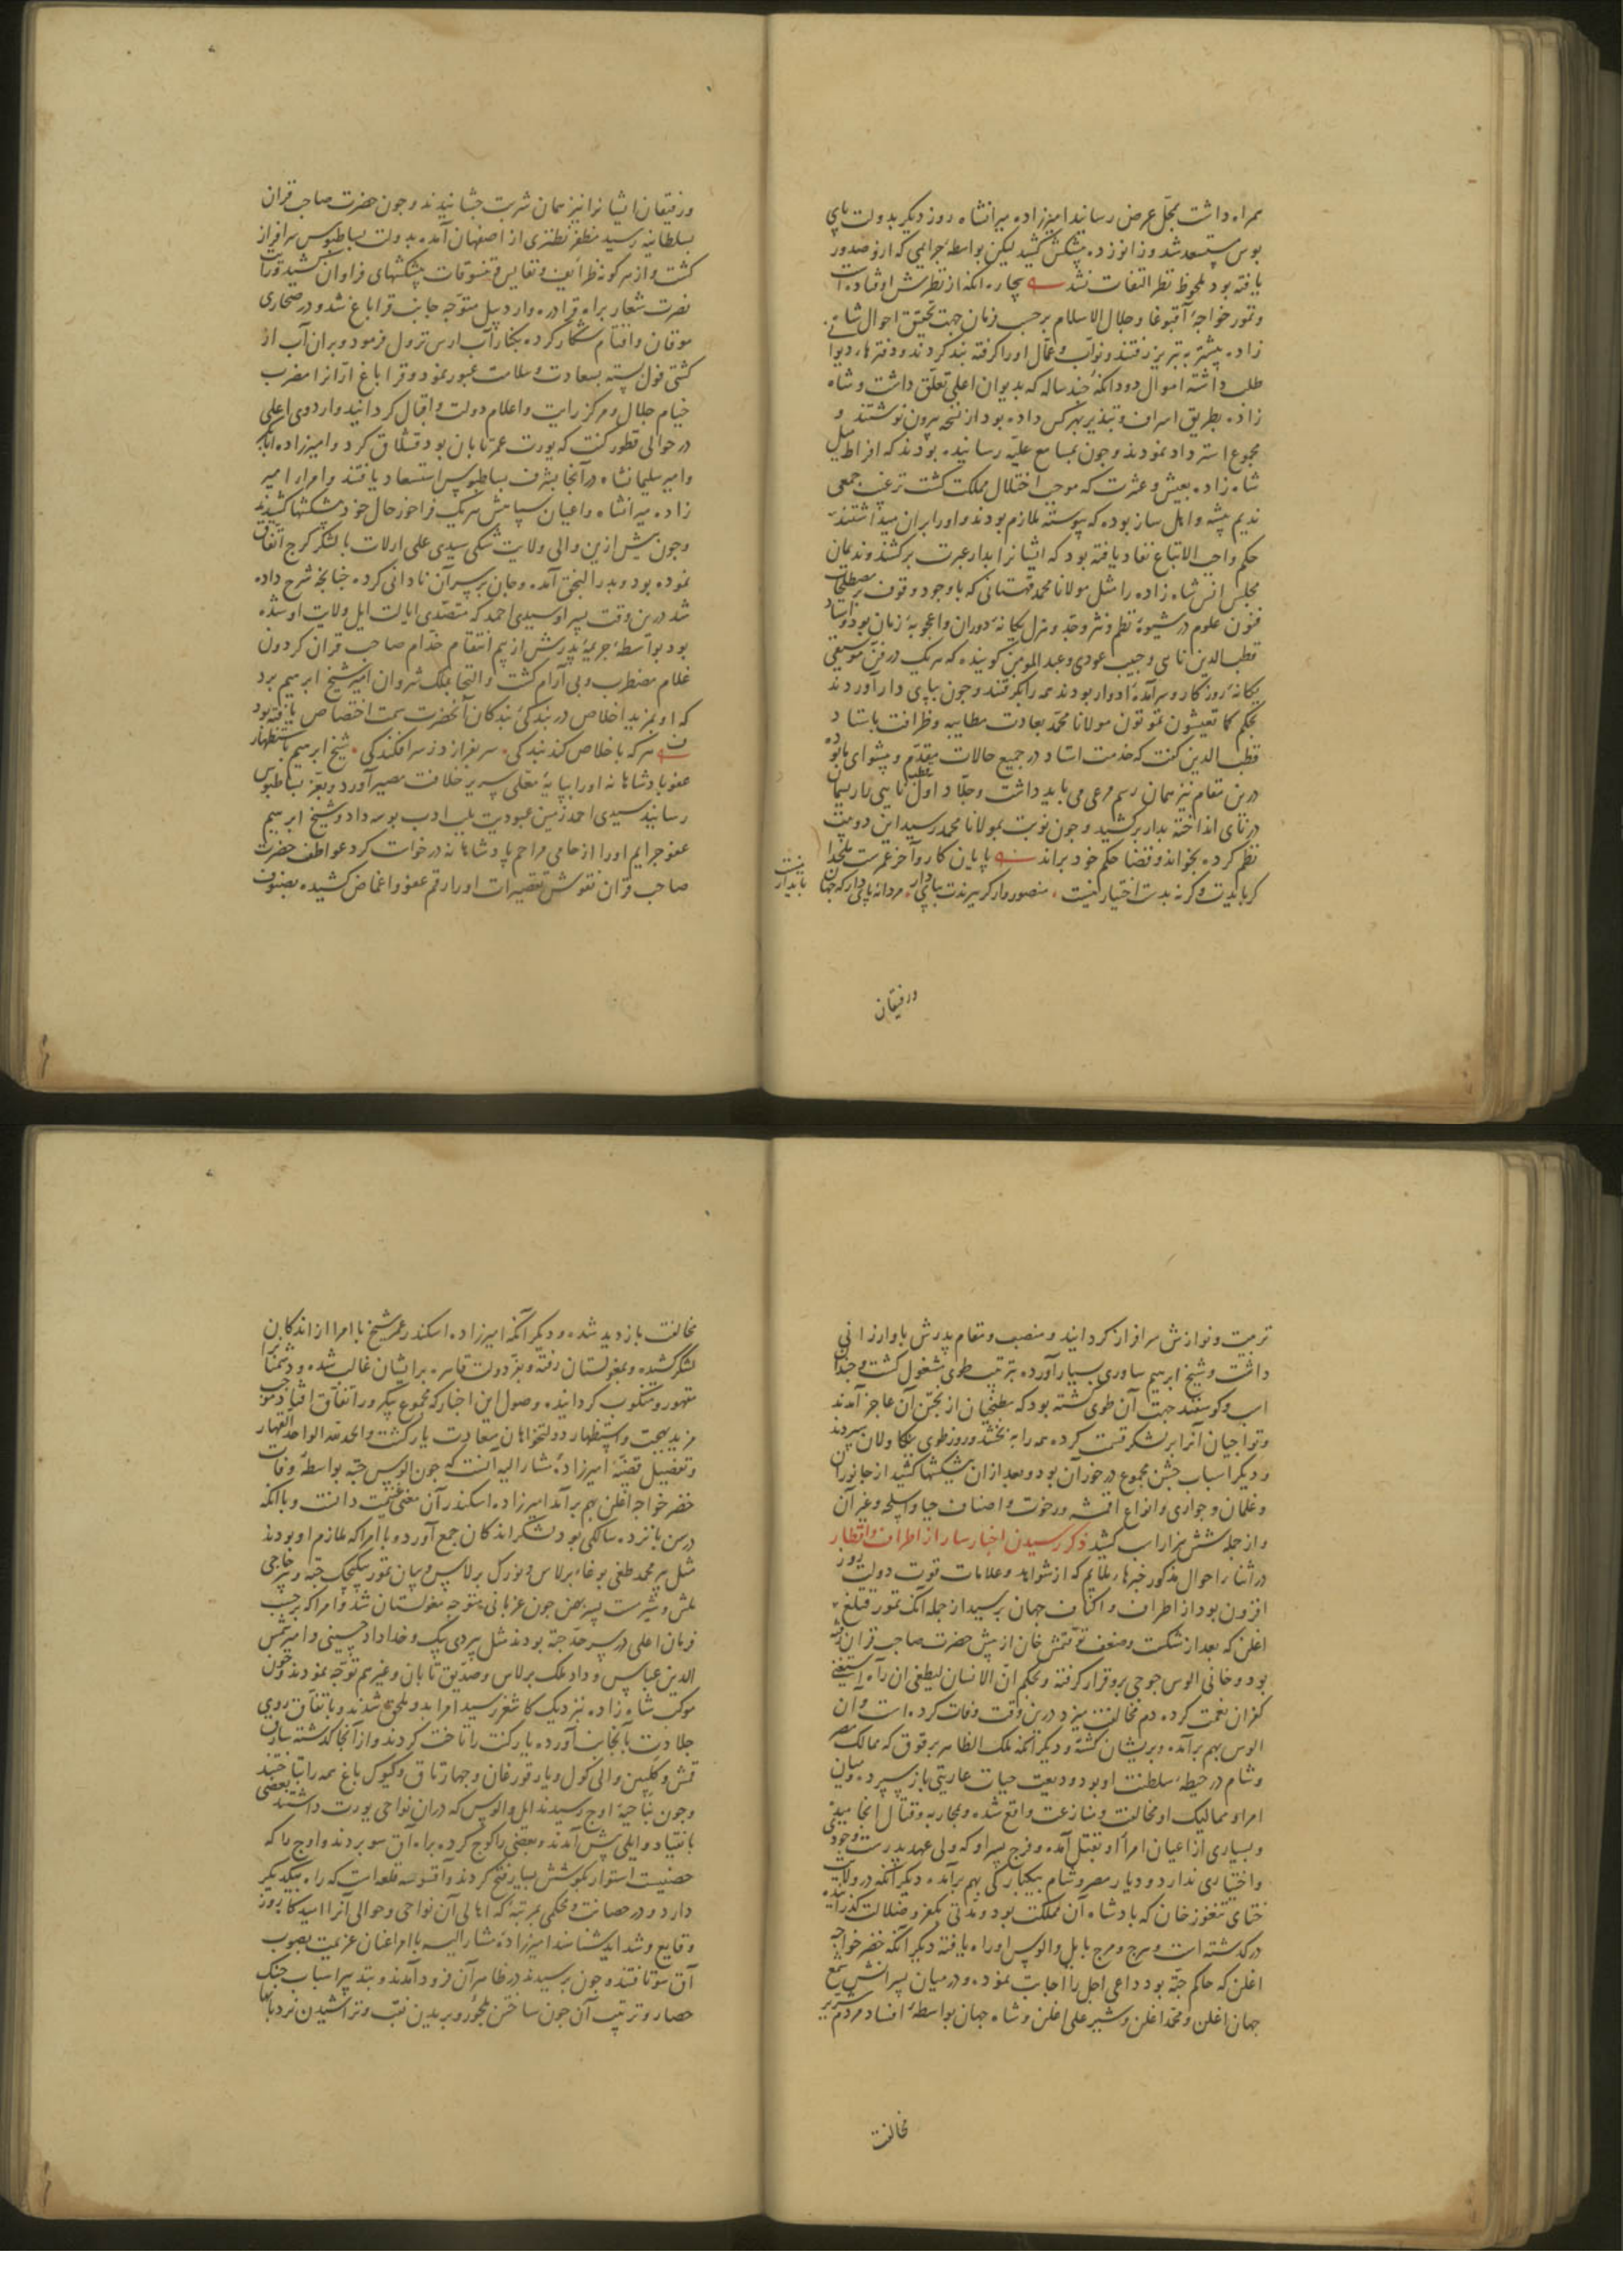 همراه داشت بمحل عرض رسانید امیرزاده میرانشاه روز دیکر بدولت پای
بوس مستسعد شد و زانو زده پیشکش کشید لیکن بواسطه جرایمی که ازو صدور
یافته بود ملحوظ نظر التفات نشد بیچاره انکه از نظرش اوفتاده است
و تمور خواجه آقبوغا و جلال الاسلام بر حسب فرمان جهت تحقیق احوال شاه
زاده پیشتر به تبریز رفتند و نواب و عمال اورا کرفته بند کردند و دفترها دیوا
طلب داشته اموال دودانکه چند ساله که بدیوان اعلی تعلق داشت و شاه
زاده بطریق اسراف و تبذیر بهر کس داده بود از نسخه بیرون نوشتند و
مجموع استرداد نمودند و چون بمسامع علیه رسانیده بودند که افراط میل
شاه زاده بعیش و عشرت که موجب اختلال مملکت کشت ترغیب جمعی
ندیم پیشه و اهل ساز بوده که پیوسته ملازم بودند و اورا بران میداشتند
حکم واجب الاتباع نفاد یافته بود که ایشانرا بدار عبرت برکشند و ندیمان
مجلس انس شاه زاده را مثل مولانا محمد قهستانی که با وجود وقوف بر مصطلحات
فنون علوم در شیوه نظم و نثر و جد و هزل یکانه دوران و اعجوبه زمان بود و استاد
قطب الدین نایی و حبیب عودی و عبد المومن کوینده که هر یک در فن موسیقی
یکانه روزکار و سرآمده ادوار بودند همه را بکرفتند و چون بپای دار آوردند
بحکم کما تعیشون تموتون مولانا محمد بعادت مطایبه و ظرافت با ستاد
قطب الدین کفت که خدمت استاد در جمیع حالات مقدم و پیشوای ما بوده
درین مقام نیز همان رسم مرعی می باید داشت و جلاد اول قطب نایی را ریسمان
در نای انداخته بدار برکشید و چون نوبت بمولانا محمد رسید این دو بیت
نظم کرده بخواند و قضا حکم خود براند پایان کار و آخر عمرست ملحدا
کر بایدت و کر نه بدست اختیار نیست منصور وار کر ببرندت بپای دار مردانه پای دار که جهان
پایدار نیست
و رفیقان
و رفیقان ایشانرا نیز همان شربت چشانیدند و چون حضرت صاحب قران
بسلطانیه رسید مظفر نطنزی از اصفهان آمده بدولت بساطبوس سرافراز
کشت و از هر کونه ظرائف و نفایس و تنسوقات پیشکشهای فراوان کشید و رآیت
نصرت شعار براه قرادره و اردبیل متوجه جانب قراباغ شد و در صحاری
موقان واقتام شکار کرده بکنار آب ارس نزول فرمود و بران آب از
کشتی فول بسته بسعادت و سلامت عبور نمود و قراباغ اران را مضرب
خیام جلال و مرکز رایت و اعلام دولت و اقبال کردانید و اردوی اعلی
در حوالی قطورکنت که یورت عمر تابان بود قشلاق کرد و امیرزاده ابابکر
و امیر سلیمانشاه در آنجا بشرف بساطبوس استسعاد یافتند و امرا امیر
زاده میرانشاه و اعیان سپاهش هر یک فراخور حال خود پیشکشها کشیدند
و چون پیش ازین والی ولایت شکی سیدی علی ارلات با لشکر کرج اتفاق
نموده بود و بدر النجق آمده و جان بر سر آن نادانی کرده چنانچه شرح داده
شد درین وقت پسر او سیدی احمد که متصدی ایالت ایل و ولایت او شده
بود بواسطه جریمه پدرش از بیم انتقام خدام صاحب قران کردون
غلام مضطرب و بی آرام کشت و التجا بملک شروان امیر شیخ ابرهیم برد
که او بمزید اخلاص در بندکی بندکان آنحضرت سمت اختصاص یافته بود
هر که باخلاص کند بندکی سرنفرازد ز سرافکندکی شیخ ابرهیم باستظهار
عفو بادشاهانه اورا بپایه معلی سریر خلافت مصیر آورد و بعز بساطبوس
رسانید سیدی احمد زمین عبودیت بلب ادب بوسه داد و شیخ ابرهیم
عفو جرایم اورا از حامی مراحم پادشاهانه درخواست کرد عواطف حضرت
صاحب قران نقوش تقصیرات اورا رقم عفو و اغماض کشیده بصنوف
تربیت و نوازش سرافراز کردانید و منصب و مقام پدرش باو ارزانی
داشت و شیخ ابرهیم ساوری بسیار آورده بترتیب طوی مشغول کشت و چندان
اسب و کوسفند جهت آن طوی کشته بود که مطبخیان از پختن آن عاجز آمدند
و تواجیان آنرا بر لشکر قسمت کرده همه را به بخشد و روز طوی ببکاولان سپردند
و دیکر اسباب جشن مجموع در خور آن بود و بعد ازان پیشکشها کشید از جانوران
و غلمان و جواری و انواع اقمشه و رخوت و اصناف جبا و اسلحه و غیر آن
و از جمله شش هزار اسب کشید ذکر رسیدن اخبار سار از اطراف و اقطار
در اثناء احوال مذکور خبرها ملایم که از شواهد و علامات قوت دولت روز
افزون بود از اطراف و اکناف جهان برسید از جمله انک تمور قتلغ
اغلن که بعد از شکست و ضعف توقتمش خان از پیش حضرت صاحب قران رفته
بود و خانی الوس جوجی برو قرار کرفته و بحکم ان الانسان لیطغی ان رآه استغنی
کفران نعمت کرده دم مخالفت میزد درین وقت وفات کرده است و آن
الوس بهم برآمده و پریشان کشته و دیکر آنکه ملک الظاهر برقوق که ممالک مصر
و شام در حیطه سلطنت او بود ودیعت حیات عاریتی باز سپرد و میان
امرا و ممالیک او مخالفت و منازعت واقع شده و بمحاربه و قتال انجامیده
و بسیاری از اعیان امراء او بقتل آمده و فرج پسر او که ولی عهد پدرست وجود
و اختیاری ندارد و دیار مصر و شام بیکبارکی بهم برآمده دیکر آنکه در ولایت
ختای تنغوز خان که بادشاه آن مملکت بود و مدتی بکفر و ضلالت کذرانیده
درکذشته است و هرج و مرج بایل و الوس او راه یافته دیکر آنکه خضر خواجه
اغلن که حاکم جته بود داعی اجل را اجابت نموده و در میان پسرانش شمع
جهان اغلن و محمد اغلن و شیر علی اغلن و شاه جهان بواسطه افساد مردم شریر
مخالفت
مخالفت بازدید شده و دیکر آنکه امیرزاده اسکندر عمر شیخ با امرا از اندکان
لشکر کشیده و بمغولستان رفته و بفر دولت قاهره بر ایشان غالب شده و دشمنانرا
مقهور و منکوب کردانیده و وصول این اخبار که مجموع بیکروز اتفاق افتاد موجب
مزید بهجت و استظهار دولتخواهان سعادت یار کشت والحمد لله الواحد القهار
و تفصیل قضیه امیرزاده مشارالیه آنست که چون الوس جته بواسطه وفات
خضر خواجه اغلن بهم برآمد امیرزاده اسکندر آن معنی غنیمت دانست و با آنکه
در سن پانزده سالکی بود لشکر اندکان جمع آورد و با امرا که ملازم او بودند
مثل پیر محمد طغی بوغاء برلاس و بورک برلاس و بیان تمور بیکیجک جته و پیر حاجی
ملش و شیرمست پسر بهن چون عزبانی متوجه مغولستان شد و امرا که برحسب
فرمان اعلی در سرحد جته بودند مثل بیردی بیک و خداداد حسینی و امیر شمس
الدین عباس و دادملک برلاس و صدیق تابان و غیرهم توجه نمودند و چون
موکب شاه زاده نزدیک کاشغر رسید امرا بدو ملحق شدند و باتفاق روی
جلادت بآنجانب آورده یارکنت را تاخت کردند و از آنجا کذشته ساریق
قمش و کلپین و الی کول و یارقورغان و چهار تاق و کیوک باغ همه را بتاختند
و چون بناحیه اوج رسیدند ایل و الوس که دران نواحی یورت داشتند بعضی
بانقیاد و ایلی پیش آمدند و بعضی را کوچ کرده براه آق سو بردند و اوج را که
حصنیست استوار بکوشش بسیار فتح کردند و آقسو سه قلعه است که راه بیکدیکر
دارد و در حصانت و محکمی بمرتبه که اهالی آن نواحی و حوالی آنرا امیدکاه روز
وقایع و شداید شناسند امیرزاده مشارالیه با امرا عنان عزیمت بصوب
آق سو تافتند و چون برسیدند در ظاهر آن فرود آمدند و بتدبیر اسباب جنک
حصار و ترتیب آن چون ساختن ملجور و بریدن نقب و تراشیدن نردبانها